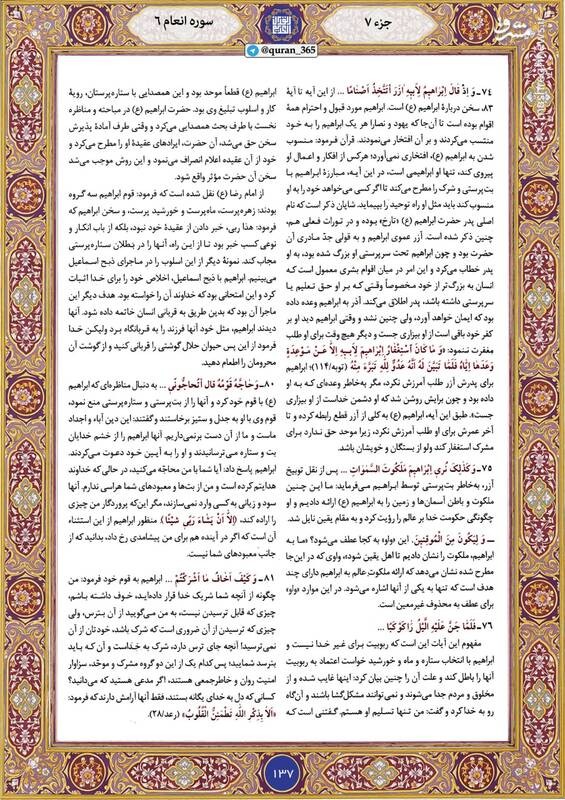 جزء ۷
سوره انعام ۶
@quran_365
مشرق
۷۴ـ وَ إِذْ قَالَ إِبْرَاهِيمُ لِأَبِيهِ آزَرَ أَتَتَّخِذُ أَصْنَامًا ... از این آیه تا آیهٔ
۸۳، سخن دربارهٔ ابراهیم (ع) است. ابراهیم مورد قبول و احترام همهٔ
اقوام بوده است تا آن‌جا که یهود و نصارا هر یک ابراهیم را به خود
منتسب می‌کردند و بر آن افتخار می‌نمودند. قرآن فرمود: منسوب
شدن به ابراهیم (ع)، افتخاری نمی‌آورد؛ هرکس از افکار و اعمال او
پیروی کند، تنها او ابراهیمی است، در این آیه، مبارزهٔ ابراهیم با
بت‌پرستی و شرک را مطرح می‌کند تا اگر کسی می‌خواهد خود را به او
منسوب کند باید مثل او راه توحید را بپیماید. شایان ذکر است که نام
اصلی پدر حضرت ابراهیم (ع) «تارخ» بوده و در تورات فعلی هم،
چنین ذکر شده است. آزر عموی ابراهیم و به قولی جدّ مادری آن
حضرت بود و چون ابراهیم تحت سرپرستی او بزرگ شده بود، به او
پدر خطاب می‌کرد و این امر در میان اقوام بشری معمول است که
انسان به بزرگ‌تر از خود مخصوصاً وقتی که بر او حق تعلیم یا
سرپرستی داشته باشد، پدر اطلاق می‌کند. آذر به ابراهیم وعده داده
بود که ایمان خواهد آورد، ولی چنین نشد و وقتی ابراهیم دید او بر
کفر خود باقی است از او بیزاری جست و دیگر هیچ وقت برای او طلب
مغفرت ننمود: «وَ مَا كَانَ اسْتِغْفَارُ إِبْرَاهِيمَ لِأَبِيهِ إِلَّا عَنْ مَوْعِدَةٍ
وَعَدَهَا إِيَّاهُ فَلَمَّا تَبَيَّنَ لَهُ أَنَّهُ عَدُوٌّ لِلَّهِ تَبَرَّءَ مِنْهُ» (توبه/۱۱۴)؛ ابراهیم
برای پدرش آزر طلب آمرزش نکرد، مگر به‌خاطر وعده‌ای که به او
داده بود و چون برایش روشن شد که او دشمن خداست از او بیزاری
جست». طبق این آیه، ابراهیم (ع) به کلی از آزر قطع رابطه کرده و تا
آخر عمرش برای او طلب آمرزش نکرد، زیرا موحد حق ندارد برای
مشرک استغفار کند ولو از بستگان و خویشان باشد.
۷۵ـ وَ كَذَلِكَ نُرِي إِبْرَاهِيمَ مَلَكُوتَ السَّمَوَاتِ ... پس از نقل توبیخ
آزر، به‌خاطر بت‌پرستی توسط ابراهیم می‌فرماید: ما این چنین
ملکوت و باطن آسمان‌ها و زمین را به ابراهیم (ع) ارائه دادیم و او
چگونگی حکومت خدا بر عالم را رؤیت کرد و به مقام یقین نایل شد.
ـ وَ لِيَكُونَ مِنَ الْمُوقِنِينَ. این «واو» به کجا عطف می‌شود؟ «ما به
ابراهیم، ملکوت را نشان دادیم تا اهل یقین شود»، واوی که در این‌جا
مطرح شده نشان می‌دهد که ارائه ملکوت عالم به ابراهیم دارای چند
هدف است که تنها به یکی از آنها اشاره می‌شود. در این موارد «واو»
برای عطف به محذوف غیرمعین است.
۷۶ـ فَلَمَّا جَنَّ عَلَيْهِ الَّيْلُ رَأَكَوْكَبًا ...
مفهوم این آیات این است که ربوبیت برای غیر خدا نیست و
ابراهیم با انتخاب ستاره و ماه و خورشید خواست اعتماد به ربوبیت
آنها را باطل کند و علت آن را چنین بیان کرد: اینها غایب شده و از
مخلوق و مردم جدا می‌شوند و نمی‌توانند مشکل‌گشا باشند و آن‌گاه
رو به خدا کرد و گفت: من تنها تسلیم او هستم. گفتنی است که
ابراهیم (ع) قطعاً موحد بود و این همصدایی با ستاره‌پرستان، رویهٔ
کار و اسلوب تبلیغ وی بود. حضرت ابراهیم (ع) در مباحثه و مناظره
نخست با طرف بحث همصدایی می‌کرد و وقتی طرف آمادهٔ پذیرش
سخن حق می‌شد، آن حضرت، ایرادهای عقیدهٔ او را مطرح می‌کرد و
خود از آن عقیده اعلام انصراف می‌نمود و این روش موجب می‌شد
سخن آن حضرت مؤثر واقع شود.
از امام رضا (ع) نقل شده است که فرمود: قوم ابراهیم سه گروه
بودند: زهره‌پرست، ماه‌پرست و خورشید پرست، و سخن ابراهیم که
فرمود: هذا ربی، خبر دادن از عقیدهٔ خود نبود، بلکه از باب انکار و
نوعی کسب خبر بود تا از این راه، آنها را در بطلان ستاره‌پرستی
مجاب کند. نمونهٔ دیگر از این اسلوب را در ماجرای ذبح اسماعیل
می‌بینیم. ابراهیم با ذبح اسماعیل، اخلاص خود را برای خدا اثبات
کرد و این امتحانی بود که خداوند آن را خواسته بود. هدف دیگر این
ماجرا آن بود که بدین طریق به قربانی انسان خاتمه داده شود. آنها
دیدند ابراهیم، مثل خود آنها فرزند را به قربانگاه برد ولیکن خدا
فرمود: از این پس حیوان حلال گوشتی را قربانی کنید و از گوشت آن
محرومان را اطعام دهید.
۸۰ـ وَحَاجَّهُ قَوْمُهُ قَالَ أَتُحَاجُّونِّي ... به دنبال مناظره‌ای که ابراهیم
(ع) با قوم خود کرد و آنها را از بت‌پرستی و ستاره‌پرستی منع نمود،
قوم وی با او به جدل و ستیز برخاستند و گفتند: این دین آباء و اجداد
ماست و ما از آن دست برنمی‌داریم. آنها ابراهیم را از خشم خدایان
بت و ستاره می‌ترسانیدند و او را به آیین خود دعوت می‌کردند.
ابراهیم پاسخ داد: آیا شما با من محاجّه می‌کنید، در حالی که خداوند
هدایتم کرده است و من از بت‌ها و معبودهای شما هراسی ندارم. آنها
سود و زیانی به کسی وارد نمی‌سازند، مگر این‌که پروردگار من چیزی
را اراده کند، (إِلَّا أَنْ يَشَاءَ رَبِّي شَيْئًا). منظور ابراهیم از این استثنا
آن است که اگر در آینده هم برای من پیشامدی رخ داد، بدانید که از
جانب معبودهای شما نیست.
۸۱ـ وَ كَيْفَ أَخَافُ مَا أَشْرَكْتُمْ ... ابراهیم به قوم خود فرمود: من
چگونه از آنچه شما شریک خدا قرار داده‌اید، خوف داشته باشم،
چیزی که قابل ترسیدن نیست، به من می‌گویید از آن بترس، ولی
چیزی که ترسیدن از آن ضروری است که شرک باشد، خودتان از آن
نمی‌ترسید! آنچه جای ترس دارد، شرک به خداست و آن که باید
بترسد شمایید؛ پس کدام یک از این دو گروه مشرک و موحّد، سزاوار
امنیت روان و خاطرجمعی هستند، اگر مدعی هستید که می‌دانید؟
کسانی که دل به خدای یگانه بستند، فقط آنها آرامش دارند که فرمود:
«أَلَا بِذِكْرِ اللَّهِ تَطْمَئِنُّ الْقُلُوبُ» (رعد/۲۸).
۱۳۷